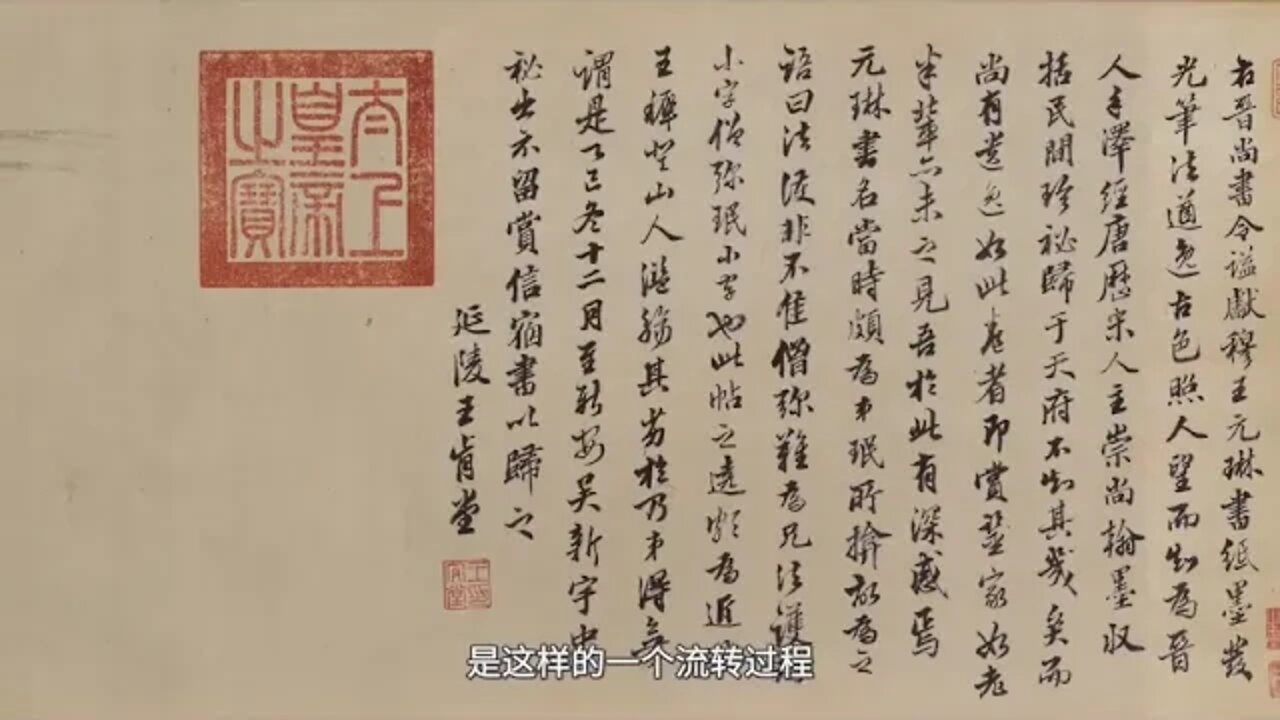 右晉尚書令謚獻穆王元琳書紙墨發
光筆法遒逸古色照人望而知為晉
人手澤經唐歷宋人主崇尚翰墨収
括民間珍秘歸于天府不知其幾矣而
尚有遺逸如此卷者即賞鑒家如老
米輩亦未之見吾於此有深感焉
元琳書名當時頗為弟珉所揜故為之
語曰法護非不佳僧弥難為兄法護
小字僧弥珉小字也此帖之遠為近
王登山人其劣於乃弟得無
謂是冬十二月至新安吳新宇中
秘出示留賞信宿書以歸之
延陵王肯堂
太上皇帝之寶
是这样的一个流转过程